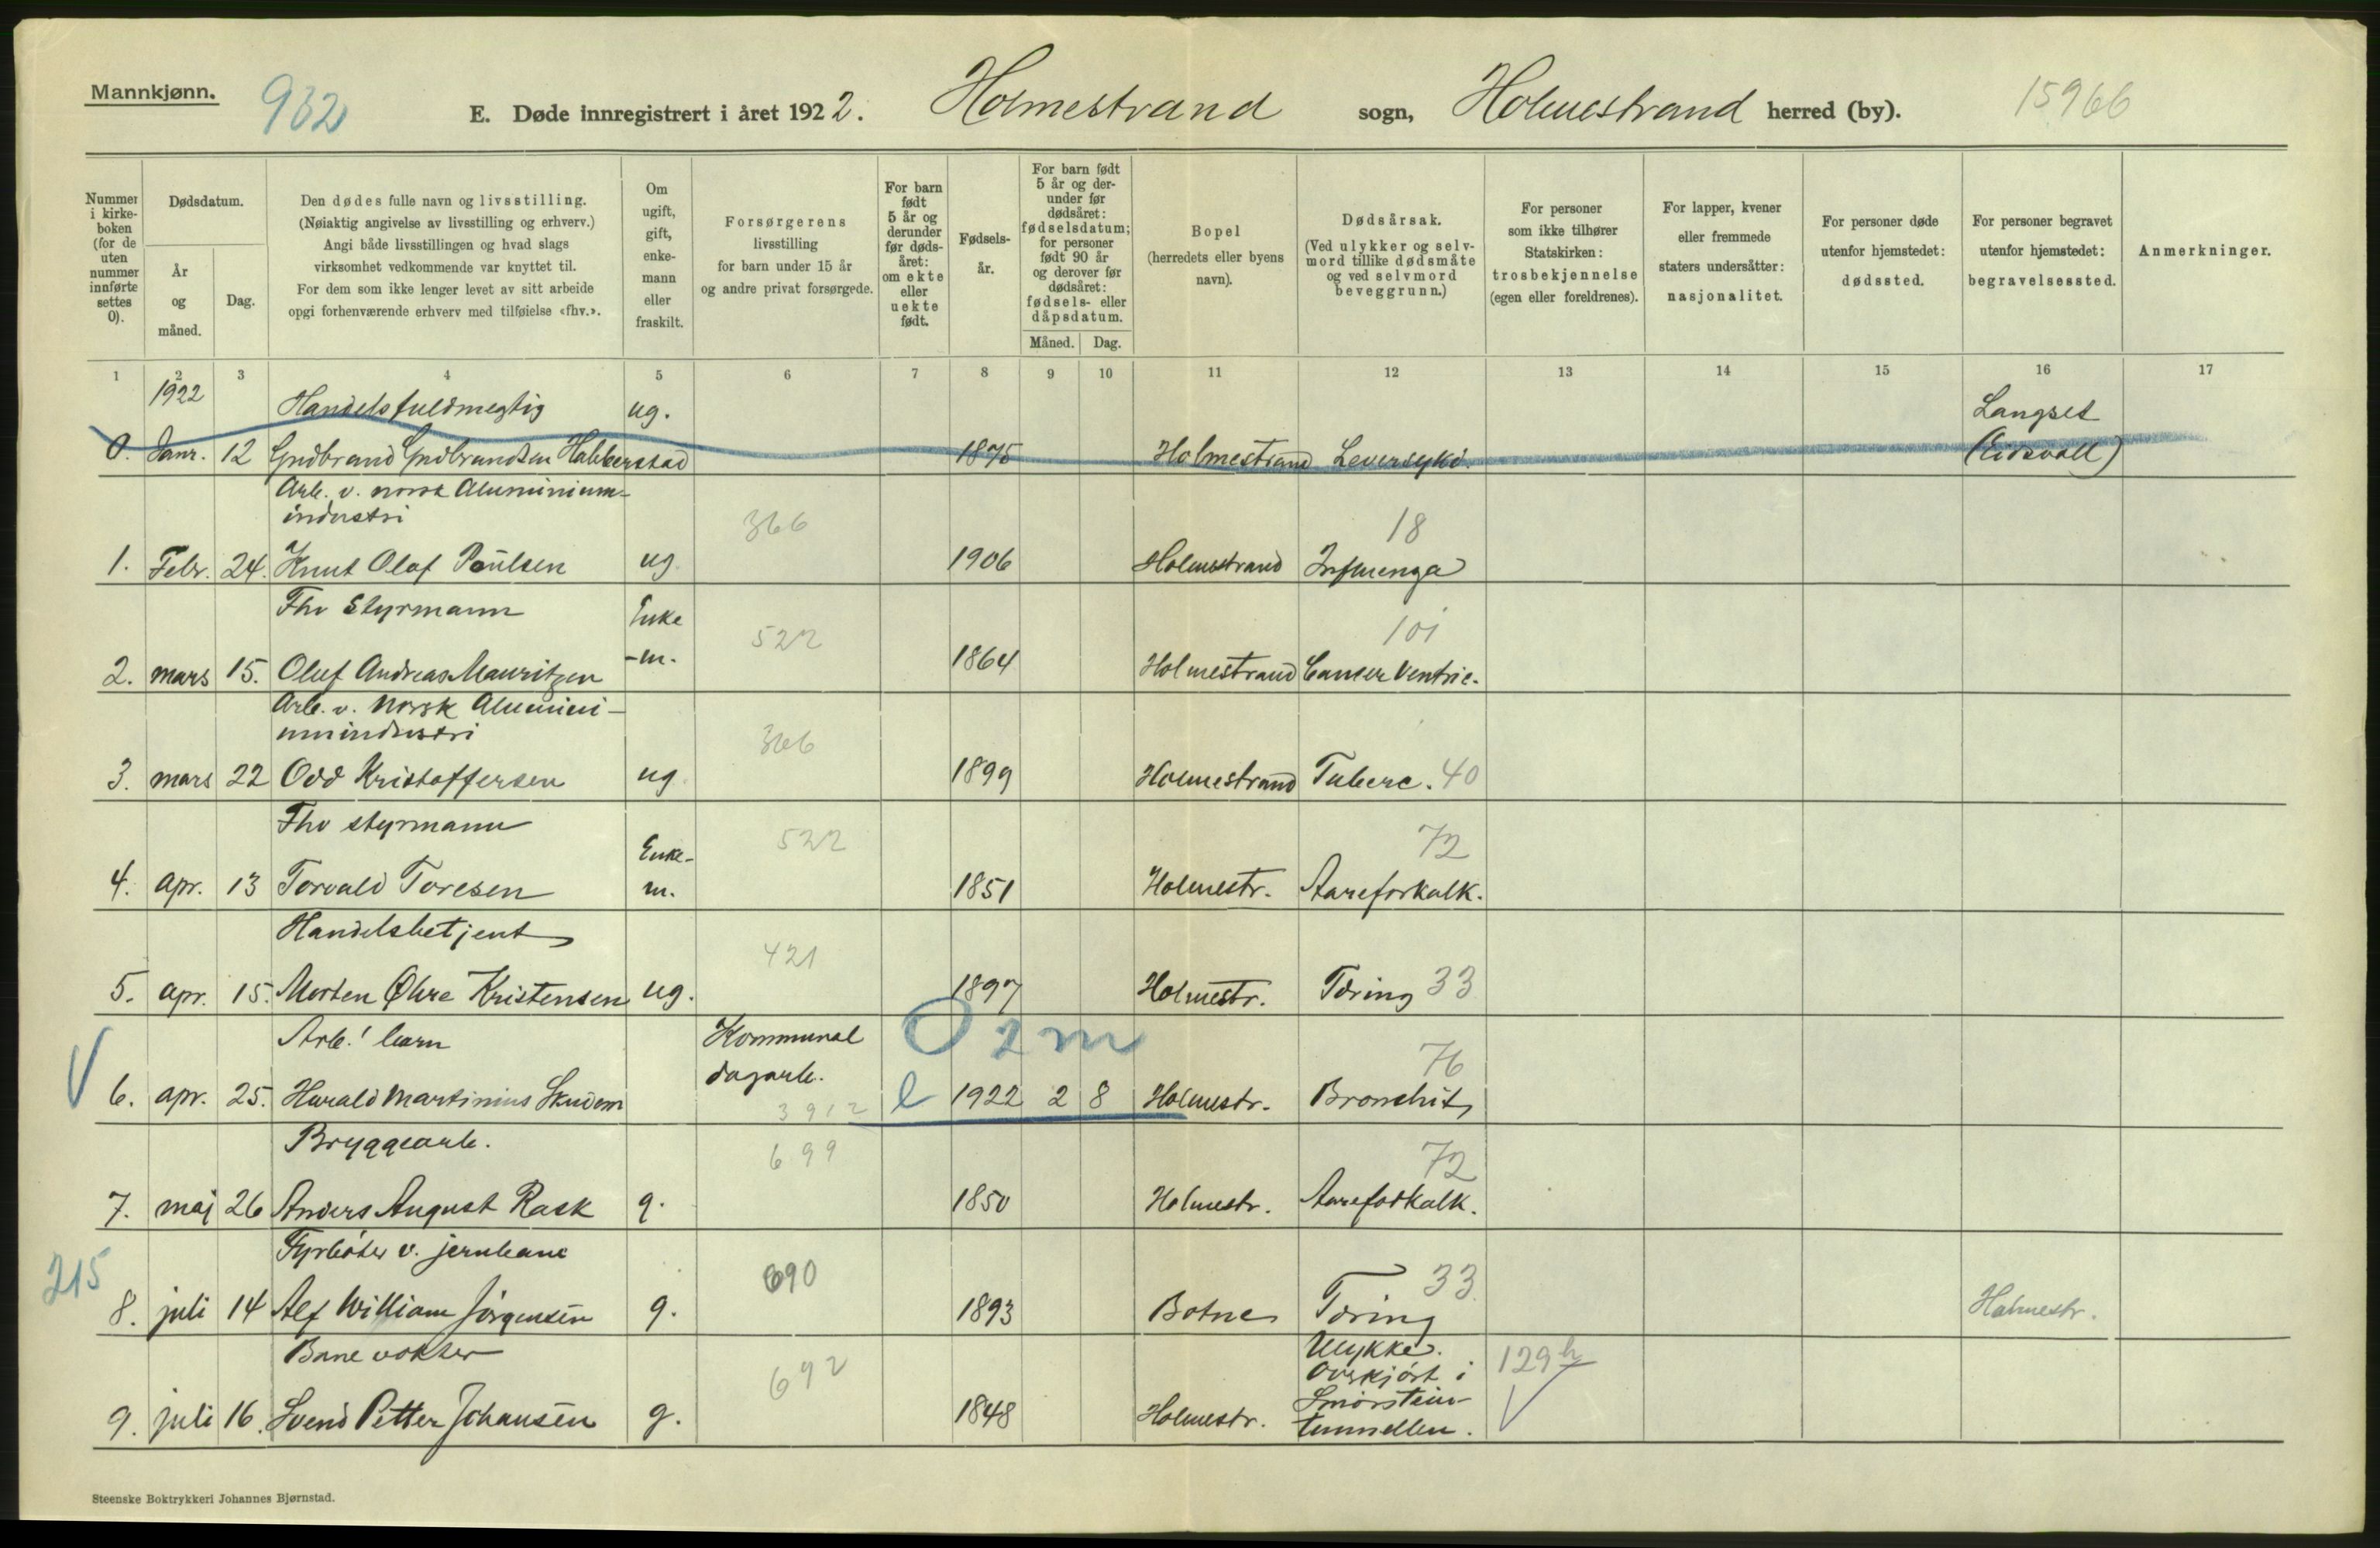 Mannkjønn.
932
E. Døde innregistrert i året 1922. Holmestrand sogn, Holmestrand herred (by).
15966
Nummer i kirke-boken (for de uten nummer innførte settes 0).
Dødsdatum.
År og måned.
Dag.
Den dødes fulle navn og livsstilling.
(Nøiaktig angivelse av livsstilling og erhverv.)
Angi både livsstillingen og hvad slags
virksomhet vedkommende var knyttet til.
For dem som ikke lenger levet av sitt arbeide
opgi forhenværende erhverv med tilføielse «fhv.».
Om ugift, gift, enke-mann eller fraskilt.
Forsørgerens
livsstilling
for barn under 15 år
og andre privat forsørgede.
For barn født 5 år og derunder før døds-året: om ekte eller uekte født.
Fødsels-år.
For barn født 5 år og der-under før dødsåret: fødselsdatum; for personer født 90 år og derover før dødsåret: fødsels- eller dåpsdatum.
Måned. Dag.
Bopel
(herredets eller byens
navn).
Dødsårsak.
(Ved ulykker og selv-
mord tillike dødsmåte
og ved selvmord
beveggrunn.)
For personer
som ikke tilhører
Statskirken:
trosbekjennelse
(egen eller foreldrenes).
For lapper, kvener
eller fremmede
staters undersåtter:
nasjonalitet.
For personer døde
utenfor hjemstedet:
dødssted.
For personer begravet
utenfor hjemstedet:
begravelsessted.
Anmerkninger.
1 2 3 4 5 6 7 8 9 10 11 12 13 14 15 16 17
1922 Handelsfuldmegtig ug. Langset
0. Janr. 12 Gudbrand Gudbrandsen Habberstad 1875 Holmestrand Leversykd. (Eidsvoll)
Arb. v. norsk Aluminium-
industri 366 18
1. Febr. 24. Knut Olaf Poulsen ug. 1906 Holmestrand Influenza
Fhv Styrmann Enke 522 101
2. mars 15. Oluf Andreas Mauritzen -m. 1864 Holmestrand Cancer Ventric.
Arb. v. Norsk Alumini-
umindustri 366
3. mars 22 Odd Kristoffersen ug. 1899 Holmestrand Tuberc. 40
Fhv styrmann Enke- 522 72
4. apr. 13 Torvald Toresen m. 1851 Holmestr. Aareforkalk.
Handelsbetjent 421
5. apr. 15. Morten Øhre Kristensen ug. 1897 Holmestr. Tæring 33
Arb.' barn Kommunal 0 2 m
dagarb. 76
6. apr. 25. Harald Martinius Skudem 3912 e 1922 2 8 Holmestr. Bronchit
Bryggearb. 699 72
7. maj 26 Anders August Rask g. 1850 Holmestr. Aareforkalk.
Fyrbøter v. jernbane 690 33
215
8. juli 14 Alf William Jörgensen g. 1893 Botne Tæring Holmestr.
Banevokter 692 Ulykke. 129 h
Overkjört i
Smörstein-
9. juli 16. Svend Petter Johansen g. 1848 Holmestr. tunnellen.
Steenske Boktrykkeri Johannes Bjørnstad.